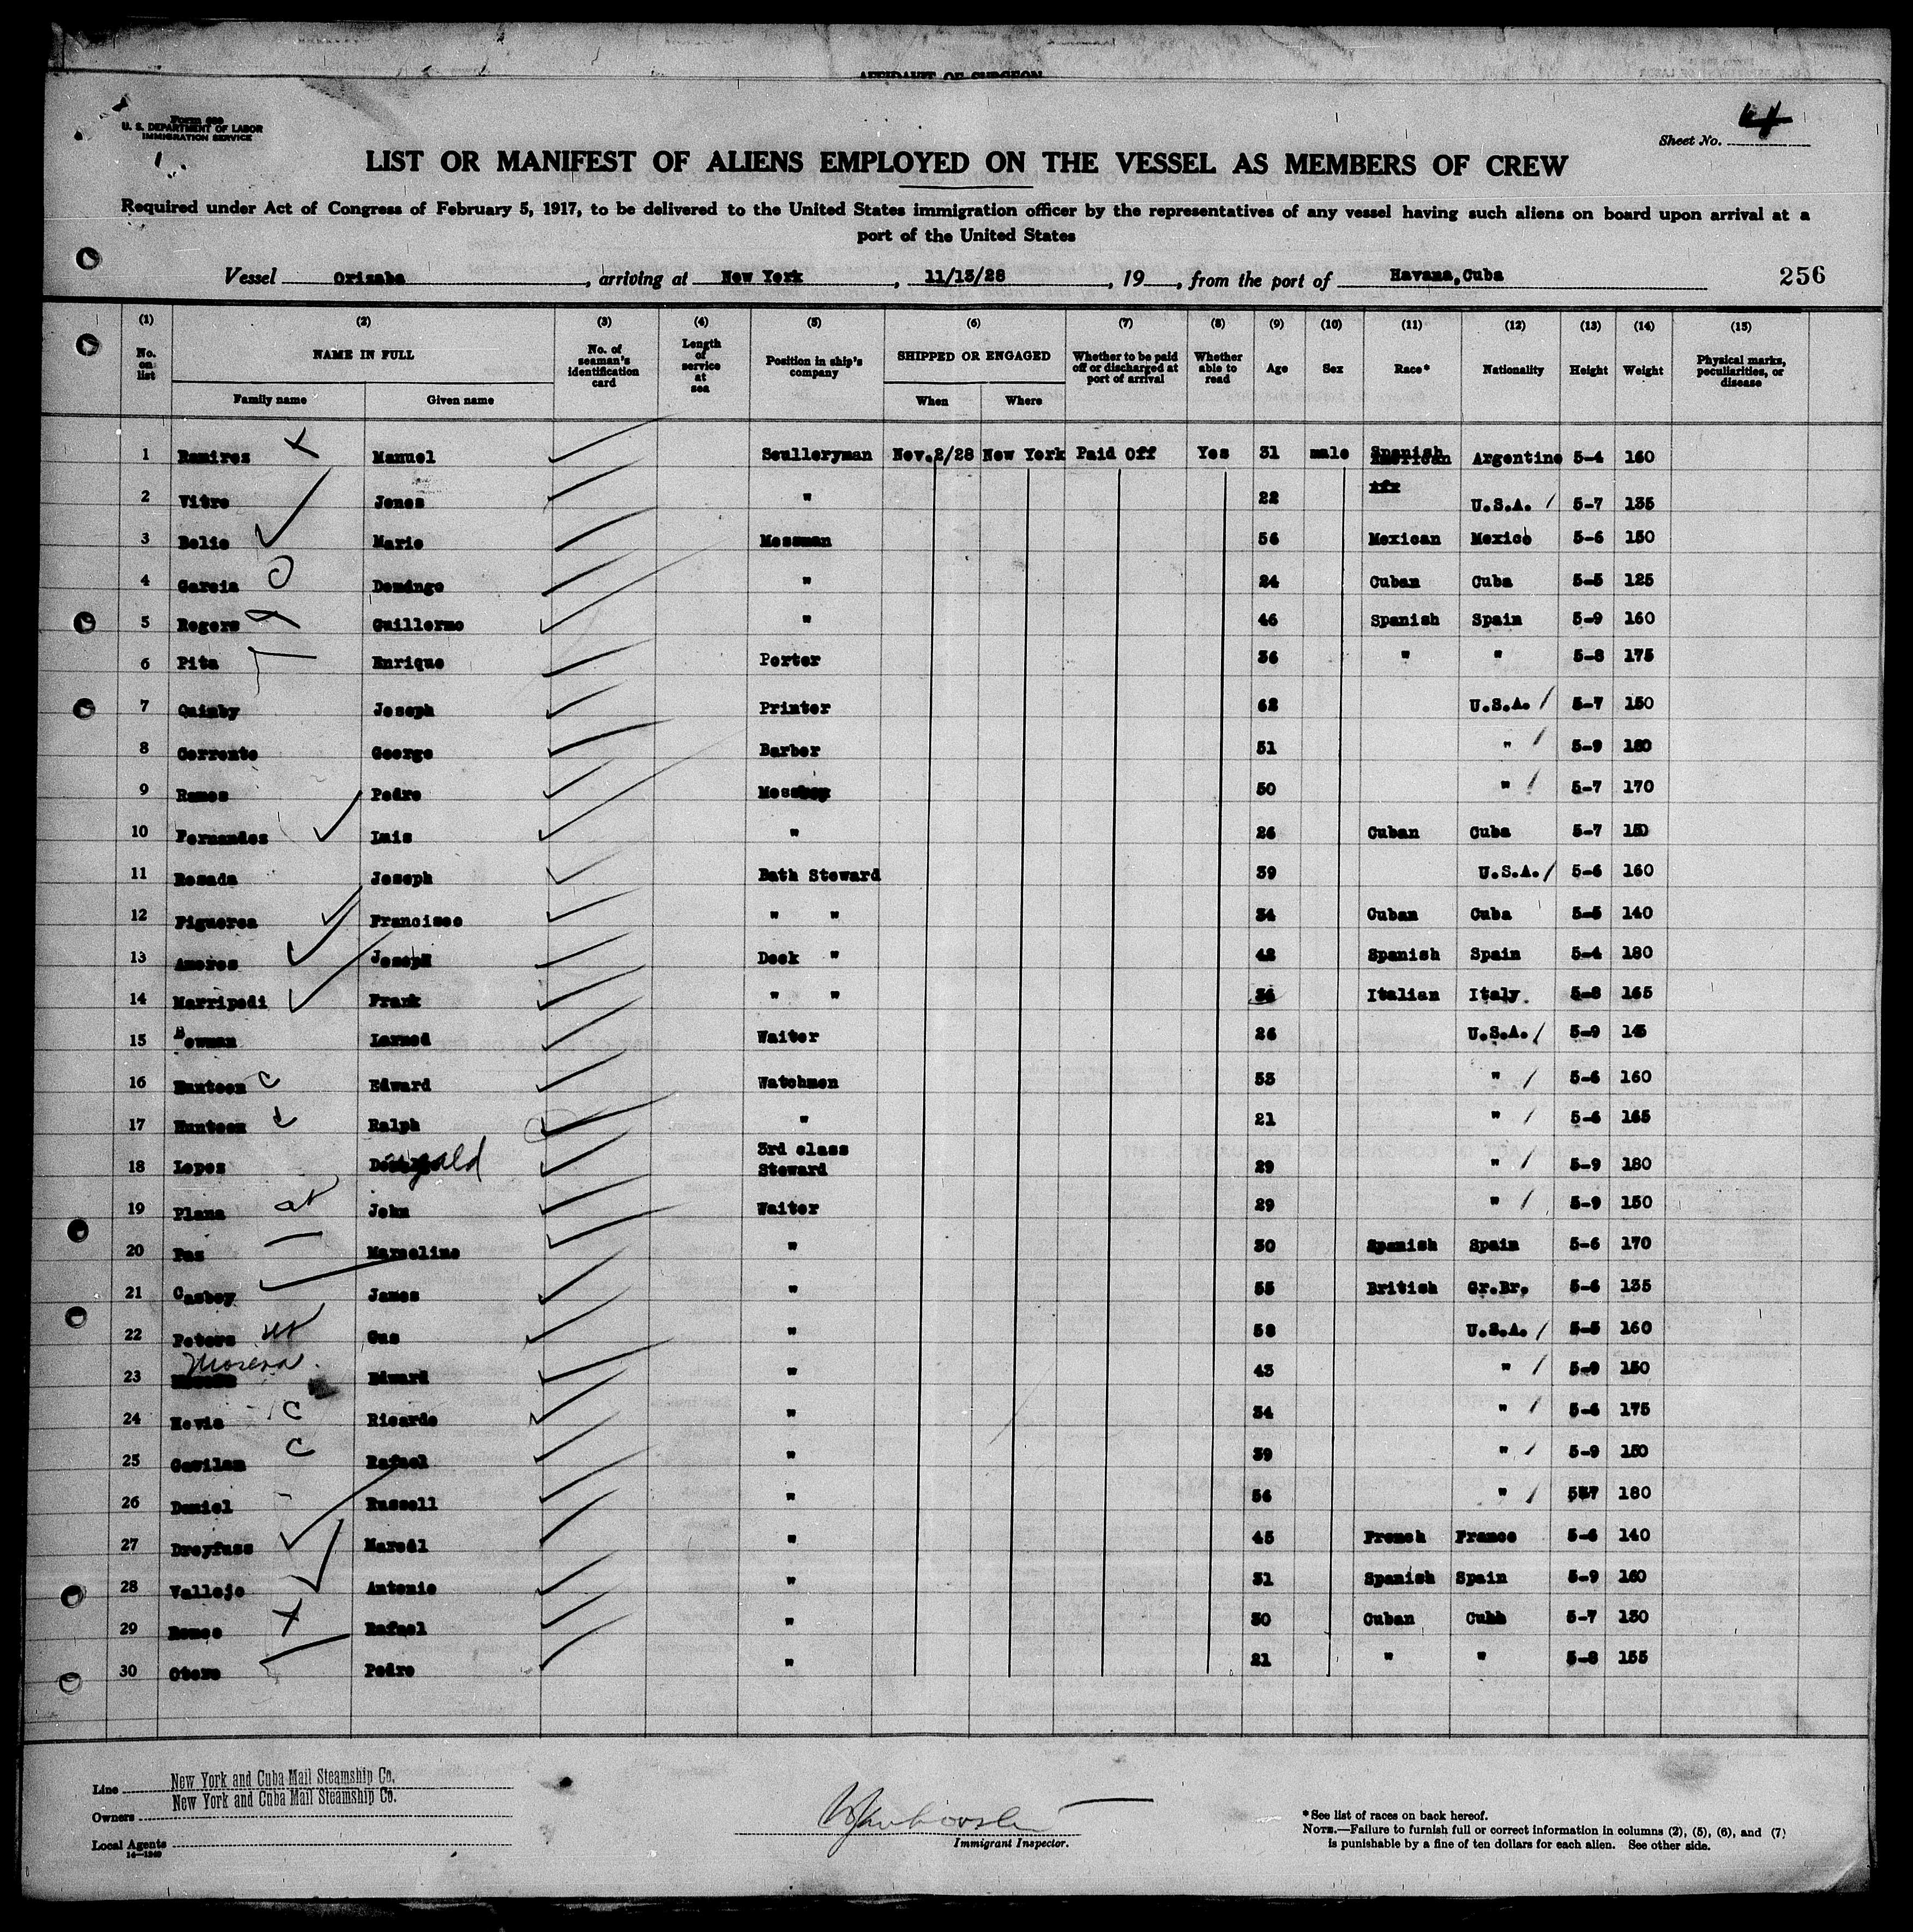 AFFIDAVIT OF SURGEON
Form 689
U. S. DEPARTMENT OF LABOR
IMMIGRATION SERVICE
Sheet No. 4
LIST OR MANIFEST OF ALIENS EMPLOYED ON THE VESSEL AS MEMBERS OF CREW
Required under Act of Congress of February 5, 1917, to be delivered to the United States immigration officer by the representatives of any vessel having such aliens on board upon arrival at a
port of the United States
Vessel Orizaba, arriving at New York, 11/13/28, 19, from the port of Havana, Cuba 256
(1) (2) (3) (4) (5) (6) (7) (8) (9) (10) (11) (12) (13) (14) (15)
No. on list NAME IN FULL No. of seaman's identification card Length of service at sea Position in ship's company SHIPPED OR ENGAGED Whether to be paid off or discharged at port of arrival Whether able to read Age Sex Race* Nationality Height Weight Physical marks, peculiarities, or disease
Family name Given name When Where
1 Ramirez Manuel Sculleryman Nov.2/28 New York Paid Off Yes 31 male Spanish American Argentine 5-4 160
2 Vitre Jones " 22 U.S.A. 5-7 135
3 Belio Mario Messman 56 Mexican Mexico 5-6 150
4 Garcia Domingo " 24 Cuban Cuba 5-5 125
5 Rogers Guillermo " 46 Spanish Spain 5-9 160
6 Pita Enrique Porter 36 " " 5-8 175
7 Quimby Joseph Printer 62 U.S.A. 5-7 150
8 Corrente George Barber 51 " 5-9 180
9 Ramos Pedro Messboy 50 " 5-7 170
10 Fernandez Luis " 26 Cuban Cuba 5-7 150
11 Rosada Joseph Bath Steward 39 U.S.A. 5-6 160
12 Figueroa Francisco " " 34 Cuban Cuba 5-5 140
13 Amores Joseph Deck " 42 Spanish Spain 5-4 180
14 Marripodi Frank " " 36 Italian Italy. 5-8 165
15 Bowman Larned Waiter 26 U.S.A. 5-9 145
16 Hunteen Edward Watchmen 53 " 5-6 160
17 Hunteen Ralph " 21 " 5-6 165
18 Lopez gald 3rd class
Steward 29 " 5-9 180
19 Plana John Waiter 29 " 5-9 150
20 Paz Marcelino " 30 Spanish Spain 5-6 170
21 Casbey James " 55 British Gr.Br. 5-6 135
22 Peters Gus " 58 U.S.A. 5-5 160
23 Moreno Edward " 43 " 5-9 150
24 Hevia Ricardo " 34 " 5-6 175
25 Gavilan Rafael " 39 " 5-9 150
26 Daniel Russell " 56 " 5-7 180
27 Dreyfuss Marcel " 45 French France 5-6 140
28 Vallejo Antonio " 31 Spanish Spain 5-9 160
29 Romeo Rafael " 30 Cuban Cuba 5-7 130
30 Otero Pedro " 21 " " 5-8 155
Line New York and Cuba Mail Steamship Co.
Owners New York and Cuba Mail Steamship Co.
Local Agents
14—1240
Immigrant Inspector.
*See list of races on back hereof.
NOTE.—Failure to furnish full or correct information in columns (2), (5), (6), and (7)
is punishable by a fine of ten dollars for each alien. See other side.